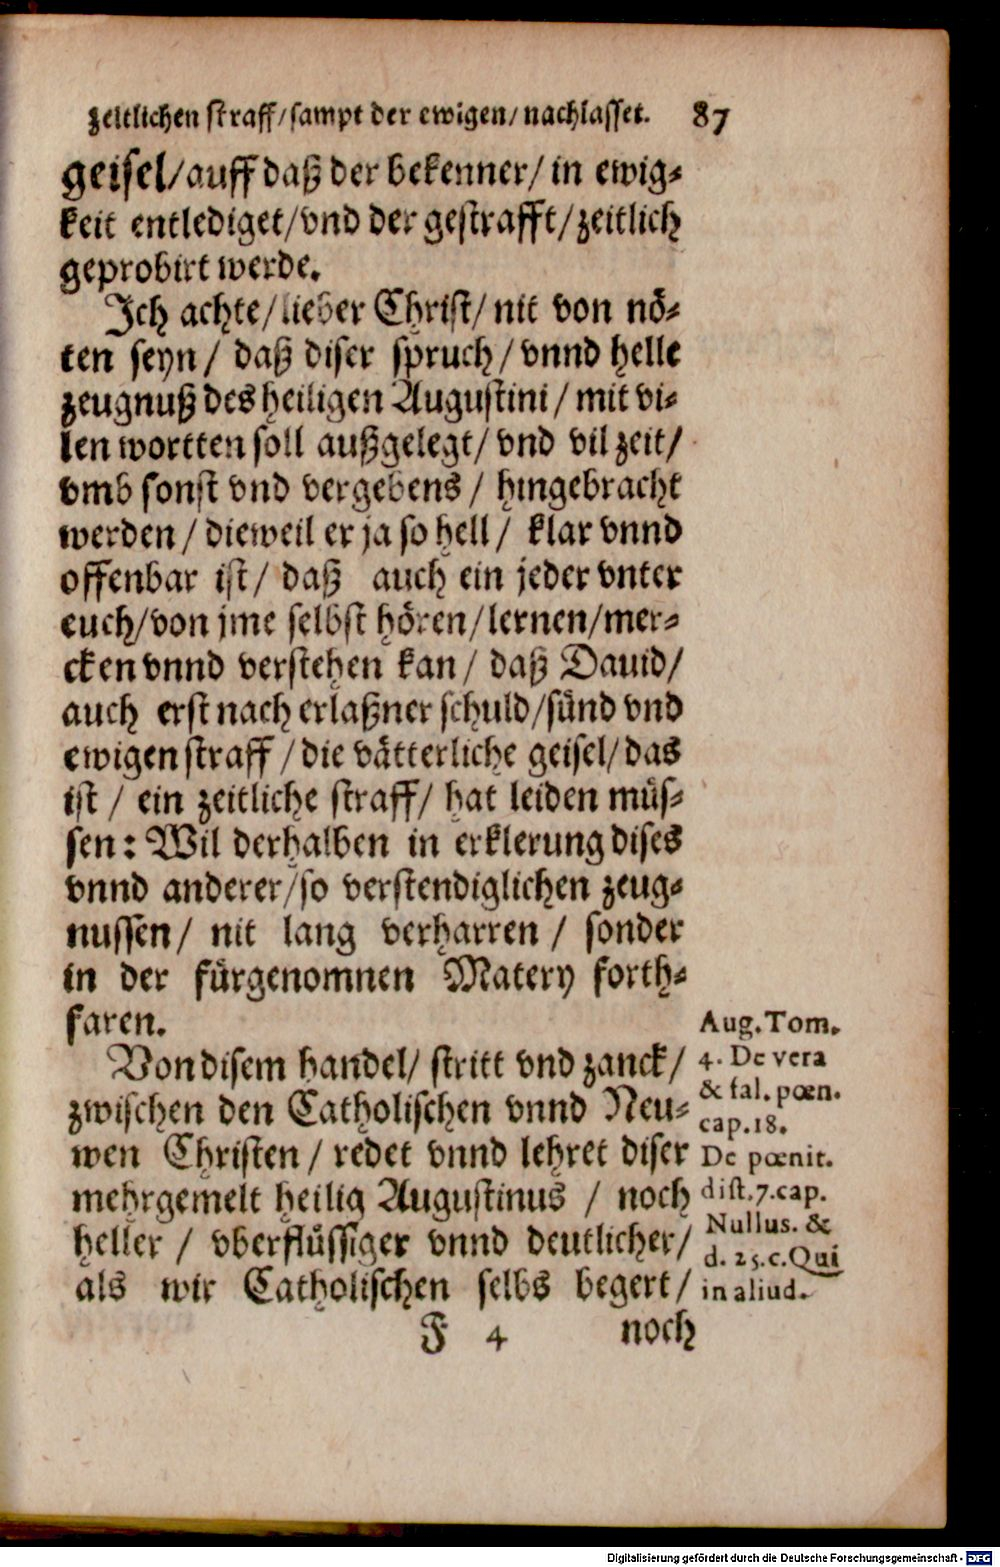 zeitlichen straff/sampt der ewigen/nachlasset. 87
geisel/auff daß der bekenner/in ewig-
keit entlediget/vnd der gestrafft/zeitlich
geprobirt werde.
Ich achte/lieber Christ/nit von nö-
ten seyn/ daß diser spruch/vnnd helle
zeugnuß des heiligen Augustini/mit vi-
len wortten soll außgelegt/vnd vil zeit/
vmb sonst vnd vergebens/ hingebracht
werden/dieweil er ja so hell/ klar vnnd
offenbar ist/ daß auch ein jeder vnter
euch/von jme selbst hören/lernen/mer-
cken vnnd verstehen kan/ daß Dauid/
auch erst nach erlaßner schuld/sünd vnd
ewigen straff/die vätterliche geisel/das
ist/ ein zeitliche straff/ hat leiden müs-
sen: Wil derhalben in erklerung dises
vnnd anderer/so verstendiglichen zeug-
nussen/ nit lang verharren/ sonder
in der fürgenomnen Matery forth-
faren.
Von disem handel/ stritt vnd zanck/
zwischen den Catholischen vnnd Neu-
wen Christen/ redet vnnd lehret diser
mehrgemelt heilig Augustinus/ noch
heller/ vberflüssiger vnnd deutlicher/
als wir Catholischen selbs begert/
F 4 noch
Aug. Tom.
4. De vera
& fal. pœn.
cap. 18.
De pœnit.
dist. 7. cap.
Nullus. &
d. 25. c. Qui
in aliud.
Digitalisierung gefördert durch die Deutsche Forschungsgemeinschaft - DFG